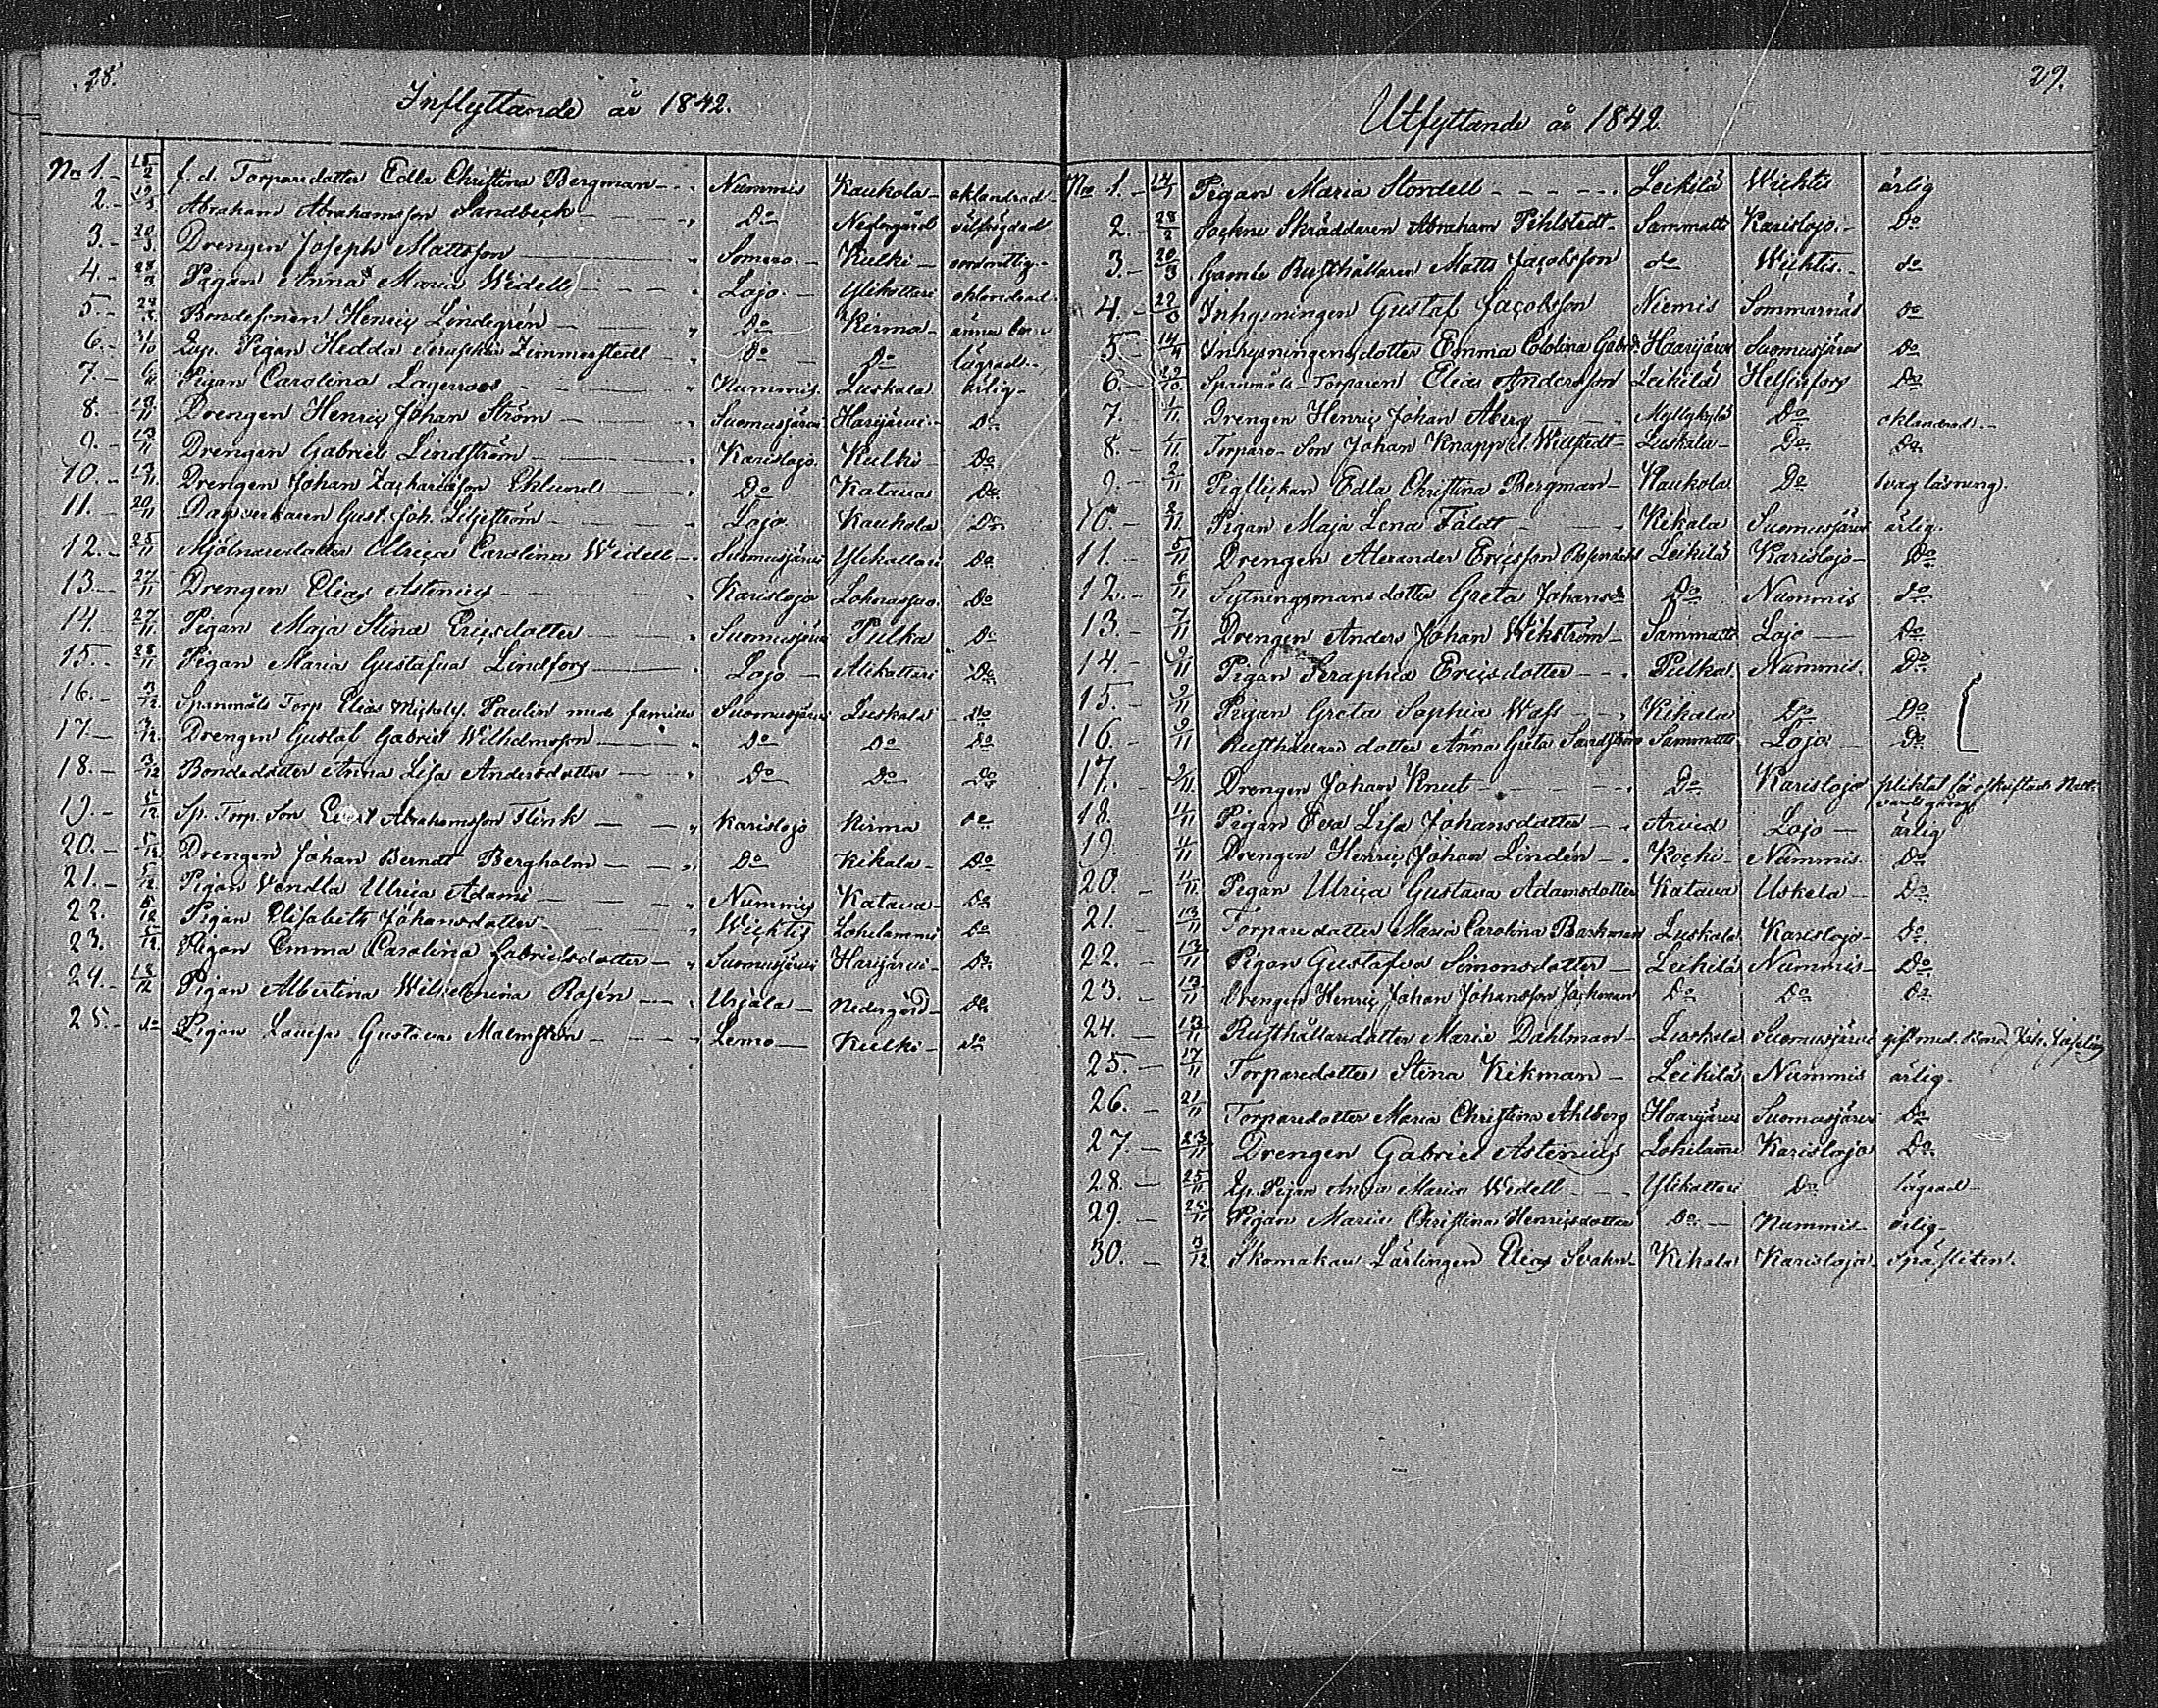 28.
Inflyttande år 1842.
No 1. 15/2 f. d. Torparedotter Edla Christina Bergman Nummis Kaukola oklandrad
2. Abraham Abrahamsson Sandbeck Do Nedergård
3. 20/3 Drengen Joseph Mattsson Somero Kulki
4. 28/3 Pigan Anna Maria Widell Lojo Ylikattari oklandrad
5. Bondesonen Henric Lindegrén Do Kirma
6. 31/10 Pigan Hedda Seraphia Zimmerstedt Do Do lägrad
7. 6/11 Pigan Carolina Lagerroos Nummis Luskala ärlig
8. Drengen Henric Johan Ström Suomusjärvi Harijärvi Do
9. 13/11 Drengen Gabriel Lindström Karislojo Kulki Do
10. 13/11 Drengen Johan Zachariasson Eklund Do Katava Do
11. 20/11 Dagsverkaren Gust. Joh. Liljeström Lojo Kaukola Do
12. 25/11 Mjölnaredotter Ulrica Carolina Widell Suomusjärvi Ylikattari Do
13. 27/11 Drengen Elias Astenius Karislojo Do
14. 27/11 Pigan Maja Stina Ericsdotter Suomusjärvi Pulka Do
15. 28/11 Pigan Maria Gustafva Lindfors Lojo Alikattari Do
16. 3/12 Spanmåls Torp. Elias Michelss. Paulin med familie Suomusjärvi Luskala Do
17. 3/12 Drengen Gustaf Gabriel Wilhelmsson Do Do Do
18. 3/12 Bondedotter Anna Lisa Andersdotter Do Do Do
19. Sp. Torp. Son Abrahamsson Flink Karislojo Kirma do
20. 5/12 Drengen Johan Berndt Bergholm Do Kikala Do
21. 5/12 Pigan Vendla Ulrica Adami Nummis Katava Do
22. 5/12 Pigan Elisabeth Johansdotter Wichtis Lohilammi Do
23. Pigan Emma Carolina Gabrielsdotter Suomusjärvi Harijärvi Do
24. 18/12 Pigan Albertina Wilhelmina Rosén Urjala Nedergård Do
25. do Pigan Lovisa Gustava Malmstén Lemo Kulki do
29.
Utflyttande år 1842.
No 1. 14/1 Pigan Maria Stordell Leikilä Wichtis ärlig
2. 28/2 Sockne Skräddaren Abraham Pihlstedt Sammatti Karislojo Do
3. 20/3 Gamle Rusthållaren Matts Jacobsson do Wichtis do
4. 22/3 Inhysningen Gustaf Jacobsson Niemis Sommarnäs do
5. 14/4 Inhysningensdotter Emma Gabriels Haarijärvi Suomusjärvi Do
6. 29/10 Spanmåls Torparen Elias Andersson Leikilä Helsinfors Do
7. 1/11 Drengen Henric Johan Åberg Myllykylä Do oklandrad
8. Torpare Son Johan Knapp el. Willstedt Luskala Do Do
9. 2/11 Edla Christina Bergman Kaukola Do svag läsning.
10. 2/11 Pigan Maja Lena Fäldt Kikala Suomusjärvi ärlig.
11. 5/11 Drengen Alexander Ericsson Rosendahl Leikilä Karislojo Do
12. 6/11 Sytningsmans dotter Greta Johansd. Do Nummis do
13. 7/11 Drengen Anders Johan Wikström Sammatti Lojo Do
14. 9/11 Pigan Seraphia Ericsdotter Pulka Nummis Do
15. 9/11 Pigan Greta Sophia Wass Kikala Do Do
16. 9/11 Rusthållare dotter Anna Greta Sandström Sammatti Lojo Do
17. 9/11 Drengen Johan Knut Do Karislojo pliktat för oskriftad Natt-
vardsgång
18. 11 Pigan Eva Lisa Johansdotter Arvid Lojo ärlig
19. 11 Drengen Henric Johan Lindén Kocki Nummis Do
20. 11 Pigan Ulrica Gustava Adamsdotter Katava Uskela Do
21. 13/11 Torparedotter Maria Carolina Barkman Luskala Karislojo Do
22. 13/11 Pigan Gustafva Simonsdotter Leikilä Nummis Do
23. 13/11 Drengen Henric Johan Johansson Jackman Do Do Do
24. 13/11 Rusthållaredotter Maria Dahlman Luskala Suomusjärvi gift med Bond.
25. 17/11 Torparedotter Stina Kikman Leikilä Nummis ärlig.
26. 21/11 Torparedotter Maria Christina Ahlberg Haarijärvi Suomusjärvi Do
27. 23/11 Drengen Gabriel Astenius Lohilami Karislojo Do
28. 25/11 Pigan Anna Maria Widell Ylikattari Do lägrad
29. 25/11 Pigan Maria Christina Henricsdotter Do Nummis ärlig
30. 3/12 Skomakare Lärlingen Elias Svahn Kikala Karislojo